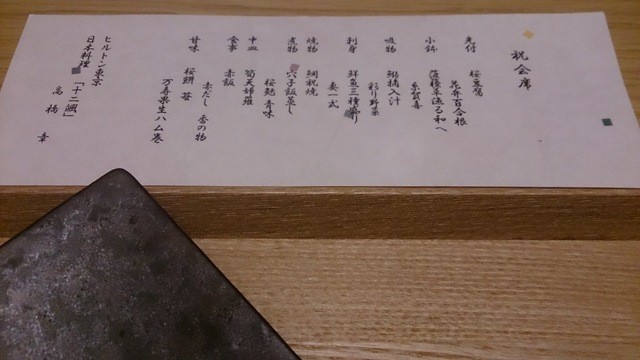 祝会席
先付 桜豆腐
花弁百合根
小鉢 菠薐草湯葉和へ
糸賀喜
吸物 鯛摘入汁
彩り野菜
刺身 鮮魚三種盛り
妻一式
焼物 鯛祝焼
煮物 穴子飯蒸し
桜麩 青味
中皿 筍天婦羅
食事 赤飯
赤だし 香の物
甘味 桜餅 苺
万寿果生ハム巻
ヒルトン東京
日本料理 「十二颯」
高橋 幸